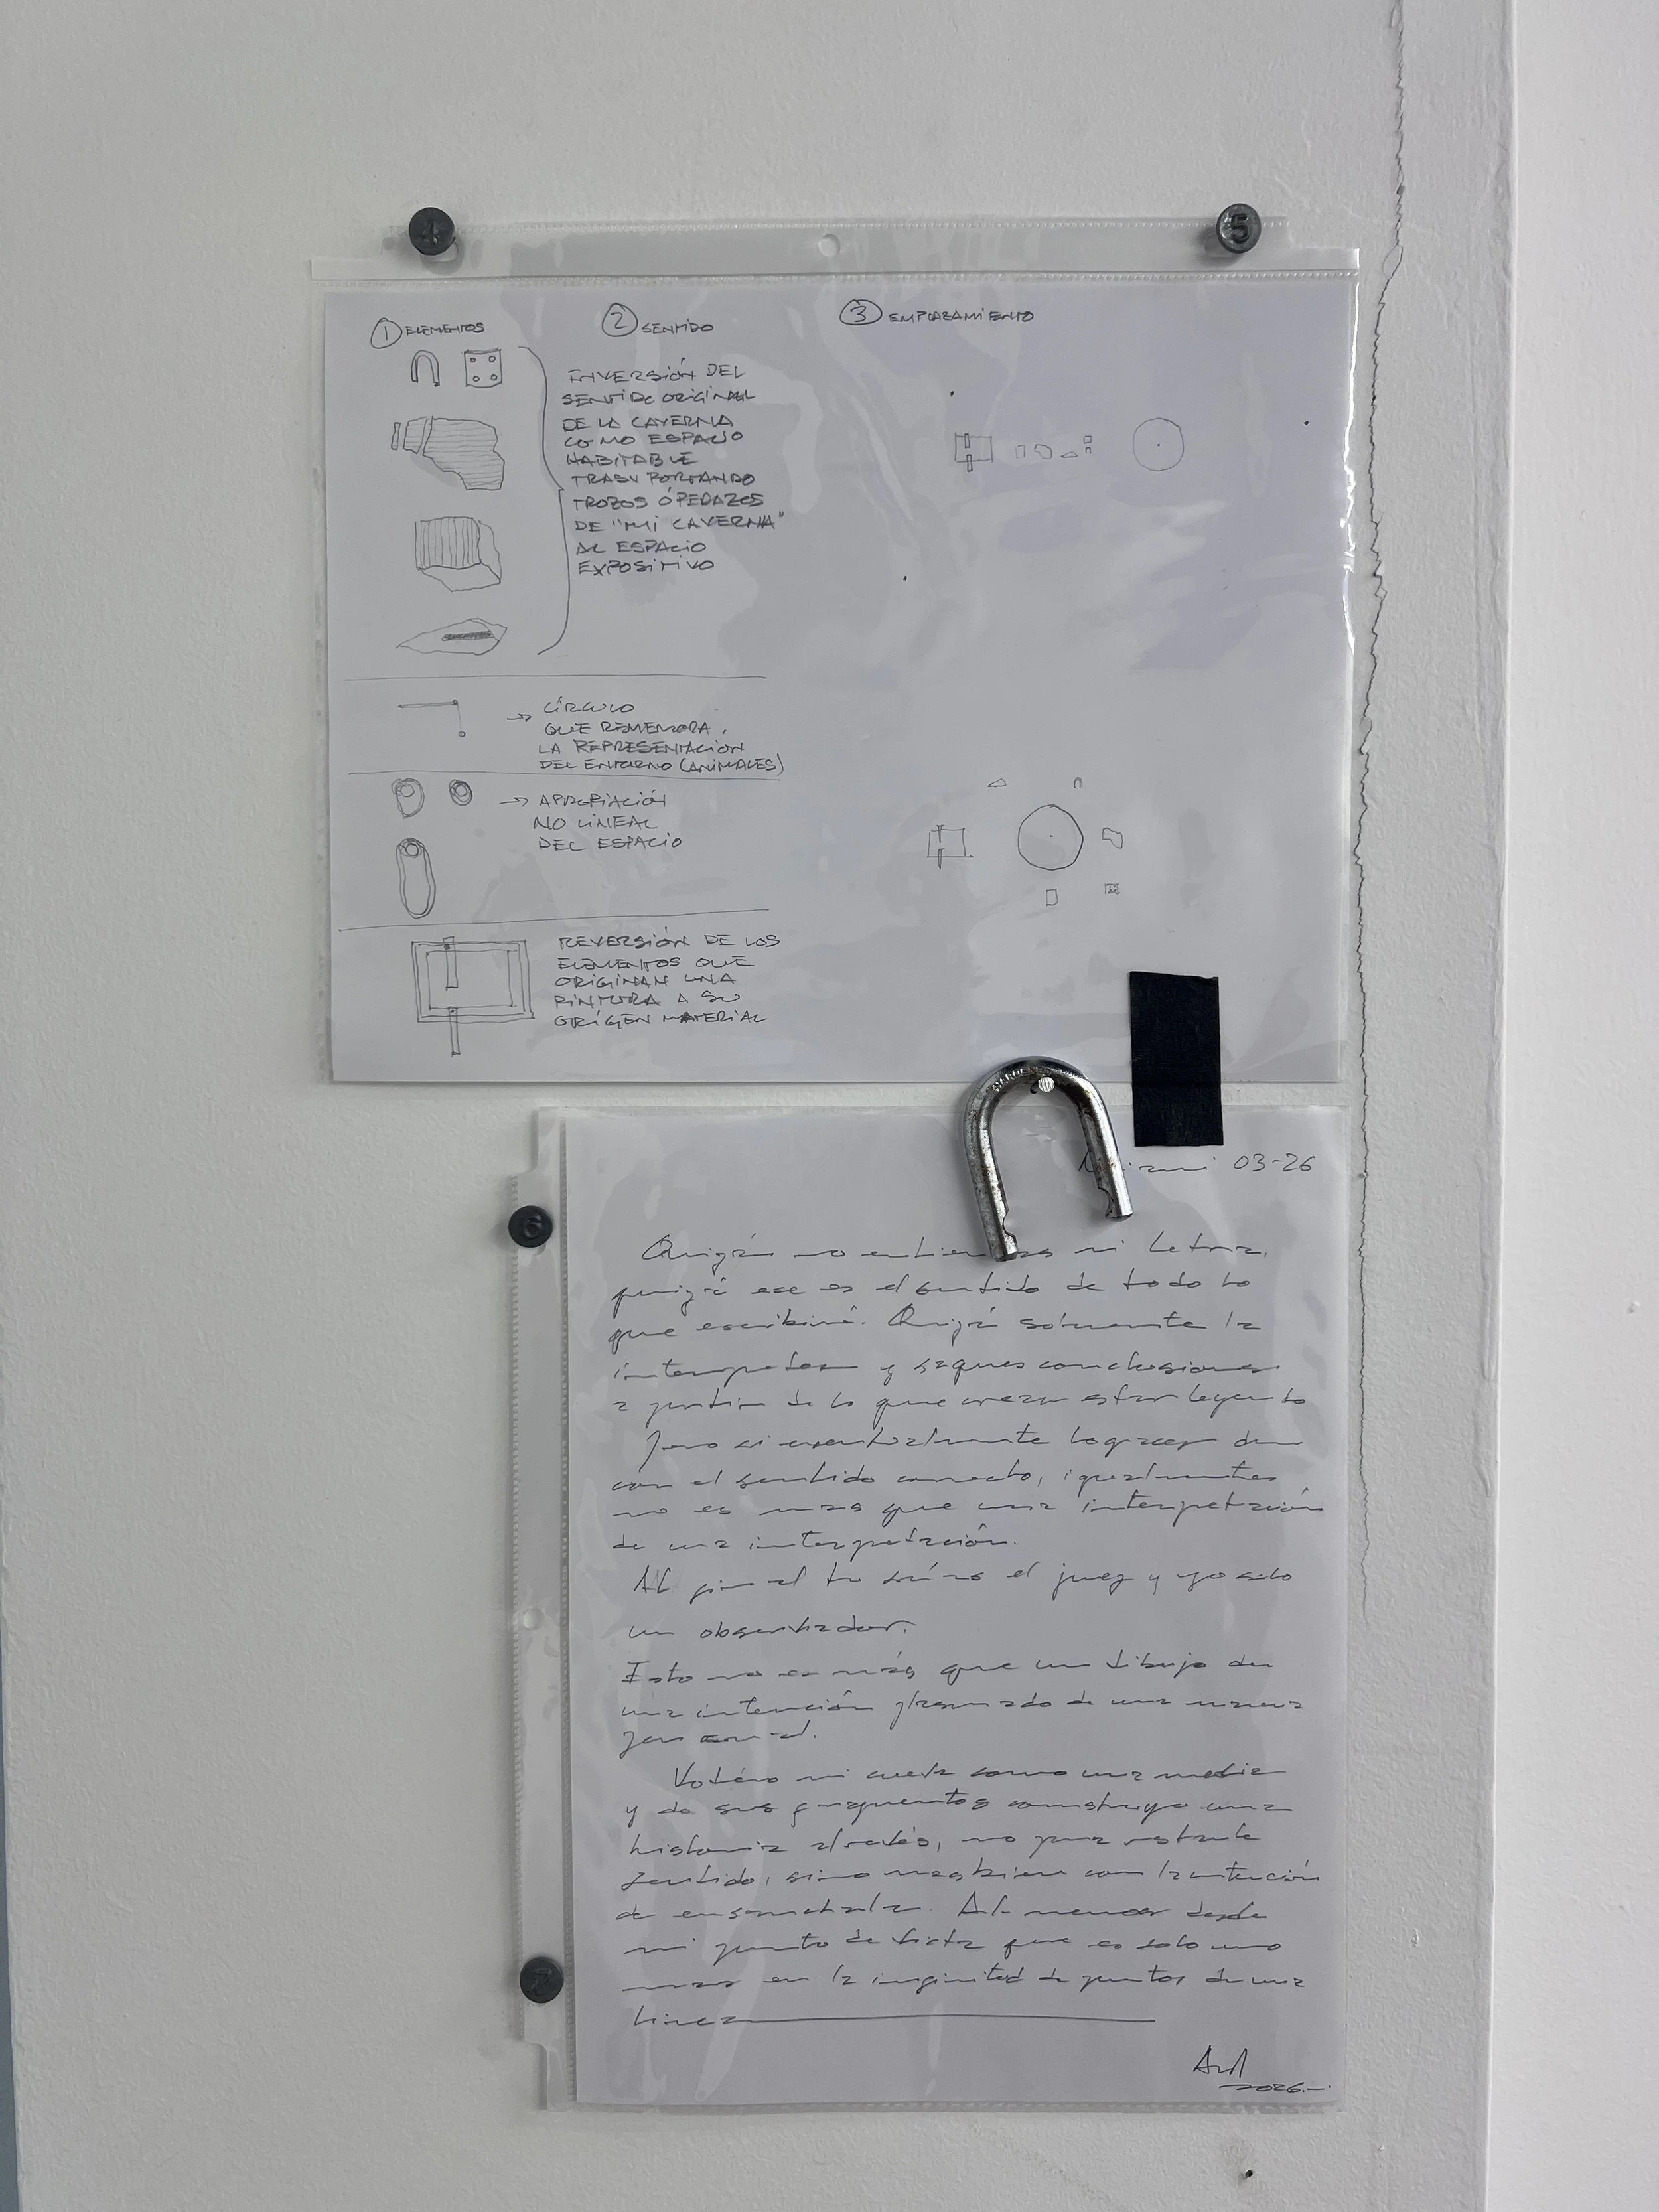 4
5
① ELEMENTOS
② SENTIDO
③ EMPLAZAMIENTO
INVERSIÓN DEL
SENTIDO ORIGINAL
DE LA CAVERNA
COMO ESPACIO
HABITABLE
TRASNPORTANDO
TROZOS Ó PEDAZOS
DE "MI CAVERNA"
AL ESPACIO
EXPOSITIVO
→ CÍRCULO
QUE REMEMORA
LA REPRESENTACIÓN
DEL ENTORNO (ANIMALES)
→ APROPIACIÓN
NO LINEAL
DEL ESPACIO
REVERSIÓN DE LOS
ELEMENTOS QUE
ORIGINAN UNA
PINTURA A SU
ORÍGEN MATERIAL
HARDENED
03-26
6
Quizás no entiendas mi letra,
quizá ese es el sentido de todo lo
que escribiré. Quizá solamente la
interpretes y saques conclusiones
a partir de lo que creas estar leyendo
Pero si eventualmente logras dar
con el sentido correcto, igualmente
no es mas que una interpretación
de una interpretación.
Al final tu serás el juez y yo solo
un observador.
Esto no es más que un dibujo de
una intención plasmado de una manera
personal.
mi cueva como una
y de sus fragmentos construyo una
historia no para
sentido, sino mas bien con la intención
de ensancharla. Al menos desde
mi punto de vista que es solo uno
mas en la infinitud de puntos de una
linea
7
2026.-